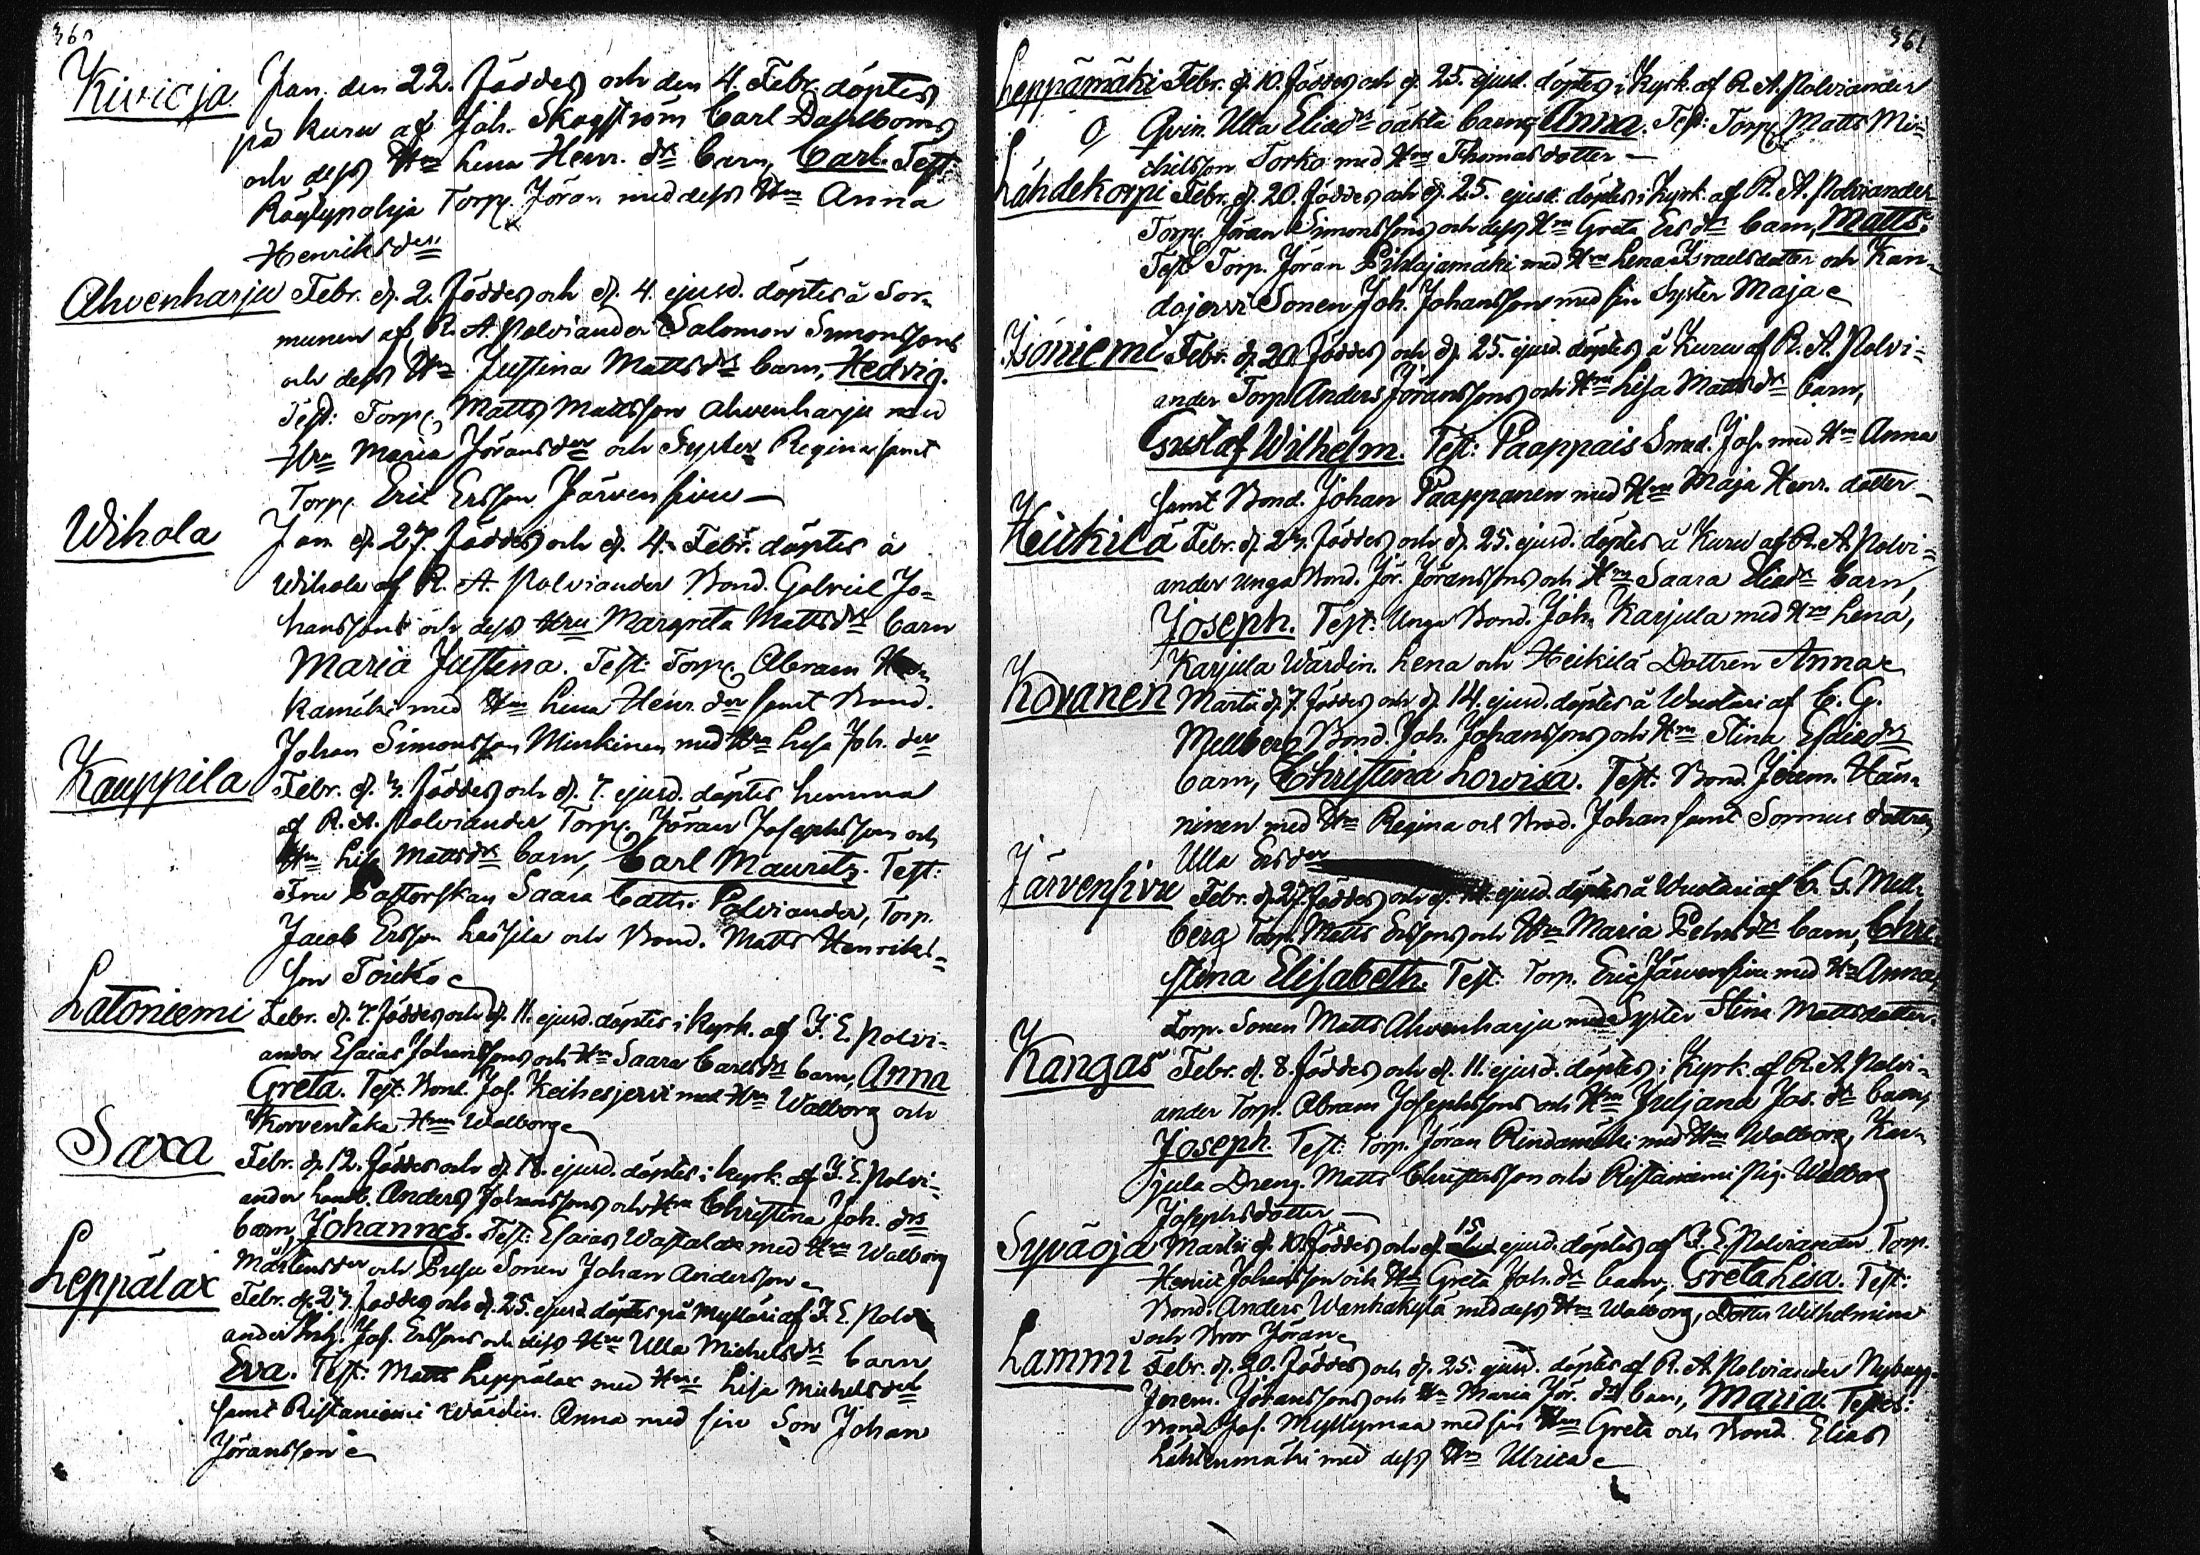 360
Kivioja Jan. den 22. föddes och den 4. Febr. döptes
på Kuru af Joh. Skogström Carl Dahlboms
och dess Hru Lena Henr. dr barn, Carl. Test:
Torp. Jöran med dess Hru Anna
Henriksdr
Ahvenharju Febr. d. 2. föddes och d. 4. ejusd. döptes å Sor-
munen af R. A. Polviander Salomon Simonssons
och dess Hru Justina Mattsdr barn, Hedvig.
Test: Torp. Matts Mattsson Ahvenharju med
Hru Maria Jöransder och Syster Regina samt
Torp. Eric Ersson Järvensivu
Wihola Jan. d. 27. föddes och d. 4. Febr. döptes å
Wihola af R. A. Polviander Bond. Gabriel Jo-
hanssons och dess Hru Margreta Mattsdr barn
Maria Justina. Test: Torp. Abram
kamäki med Hru Lena Henr. der samt Bond.
Johan Simonsson Minkinen med Hru Lisa Joh. der
Kauppila Febr. d. 3. föddes och d. 7. ejusd. döptes hemma
af R. A. Polviander Torp. Jöran Josephsson och
Hru Lisa Mattsdr barn, Carl Mauritz. Test:
Fru Pastorskan Saara Cath. Polviander, Torp.
Jacob Ersson Lassila och Bond. Matts Henriks-
son Toikko
Latoniemi Febr. d. 7. föddes och d. 11. ejusd. döptes i kyrk. af J. E. Polvi-
ander Esaias Johanssons och Hru Saara Carlsdr barn, Anna
Greta. Test. Bond. Jos. Keihesjervi med Hru Walborg och
Korventaka Hru Walborg
Saxa Febr. d. 12. föddes och d. 18. ejusd. döptes i kyrk. af J. E. Polvi-
ander Anders Johanssons och Hru Christina Joh. drs
barn, Johannes. Test: Esaias Wastalax med Hru Walborg
Mårtensder och Sonen Johan Andersson
Leppälax Febr. d. 23. föddes och d. 25. ejusd. döptes på Mylläri af J. E. Polvi
ander Jos. Erssons och dess Hru Ulla Michelsdr barn
Eva. Test: Matts Leppälax med Hru Lisa Michelsder
samt Ristaniemi Wärdin. Anna med sin Son Johan
Jöransson
361
Leppämäki Febr. d. 10. föddes och d. 25. ejusd. döptes i Kyrk. af R. A. Polviander
O Qvin. Ulla Eliædr oäkta barn, Anna. Test: Torp. Matts Mi-
chilsson Torko med Hru Thomasdotter
Lähdekorpi Febr. d. 20. föddes och d. 25. ejusd. döptes i kyrk. af R. A. Polviander
Torp. Jöran Simonssons och dess Hru Greta Ersdr barn, Matts.
Test Torp. Jöran Pihlajamäki med Hru Lena Israelsdotter och Kan-
dojervi Sonen Joh. Johansson med sin Syster Maja
Isoniemi Febr. d. 20. föddes och d. 25. ejusd. döptes å Kuru af R. A. Polvi-
ander Torp. Anders Jöranssons och Hru Lisa Mattsdr barn,
Gustaf Wilhelm. Test: Paappais Jos. med Hru Anna
samt Bond. Johan Paappanen med Hru Maja Henr. dotter
Heikkilä Febr. d. 23. föddes och d. 25. ejusd. döptes å Kuru af R. A. Polvi-
ander unga Bond. Jör. Jöranssons och Hru Saara Eliædr barn,
Joseph. Test: Unga Bond. Joh. Karjula med Hru Lena,
Karjula Wärdin. Lena och Heikilä Dottren Anna
Kovanen Martii d. 7. föddes och d. 14. ejusd. döptes å Wuolari af C. G.
Mellberg Bond. Joh. Johanssons och Hru Stina Esaiedrs
barn, Christina Lovisa. Test. Bond. Jerem. Hän-
ninen med Hru Regina och Brod. Johan samt Sormus dottren
Ulla Ersder
Järvensivu Febr. d. 27. föddes och d. 14. ejusd. döptes å Wuolari af C. G. Mell-
berg Torp. Matts Erssons och Hru Maria Pehrsdr barn, Chri-
stina Elisabeth. Test. Torp. Eric Järvensivu med Hru Anna,
Torp. Sonen Matts Ahvenharju med Syster Stina Mattsdotter
Kangas Febr. d. 8. föddes och d. 11. ejusd. döptes i Kyrk. af R. A. Polvi-
ander Torp. Abram Josephssons och Hru Juliana Jos. dr barn,
Joseph. Test: Torp. Jöran Rindamäki med Hru Walborg, Kar-
jula Dreng. Matts Christersson och Ristaniemi Pig. Walborg
Josephsdotter
Syväoja Martii d. 10. föddes och d. 15 ejusd. döptes af J. E. Polviander Torp.
Henric Johansson och Hru Greta Joh. dr barn, Greta Lisa. Test:
Bond. Anders Wanhakylä med dess Hru Walborg, Dotter Wilhelmina
och Bror Jöran
Lammi Febr. d. 20. föddes och d. 25. ejusd. döptes af R. A. Polviander Nybygg.
Jerem. Jöranssons och Hru Maria Jör. drs barn, Maria. Testes:
Bond. Jos. Myllymaa med sin Hru Greta och Bond. Elias
Lähtenmäki med dess Hru Ulrica